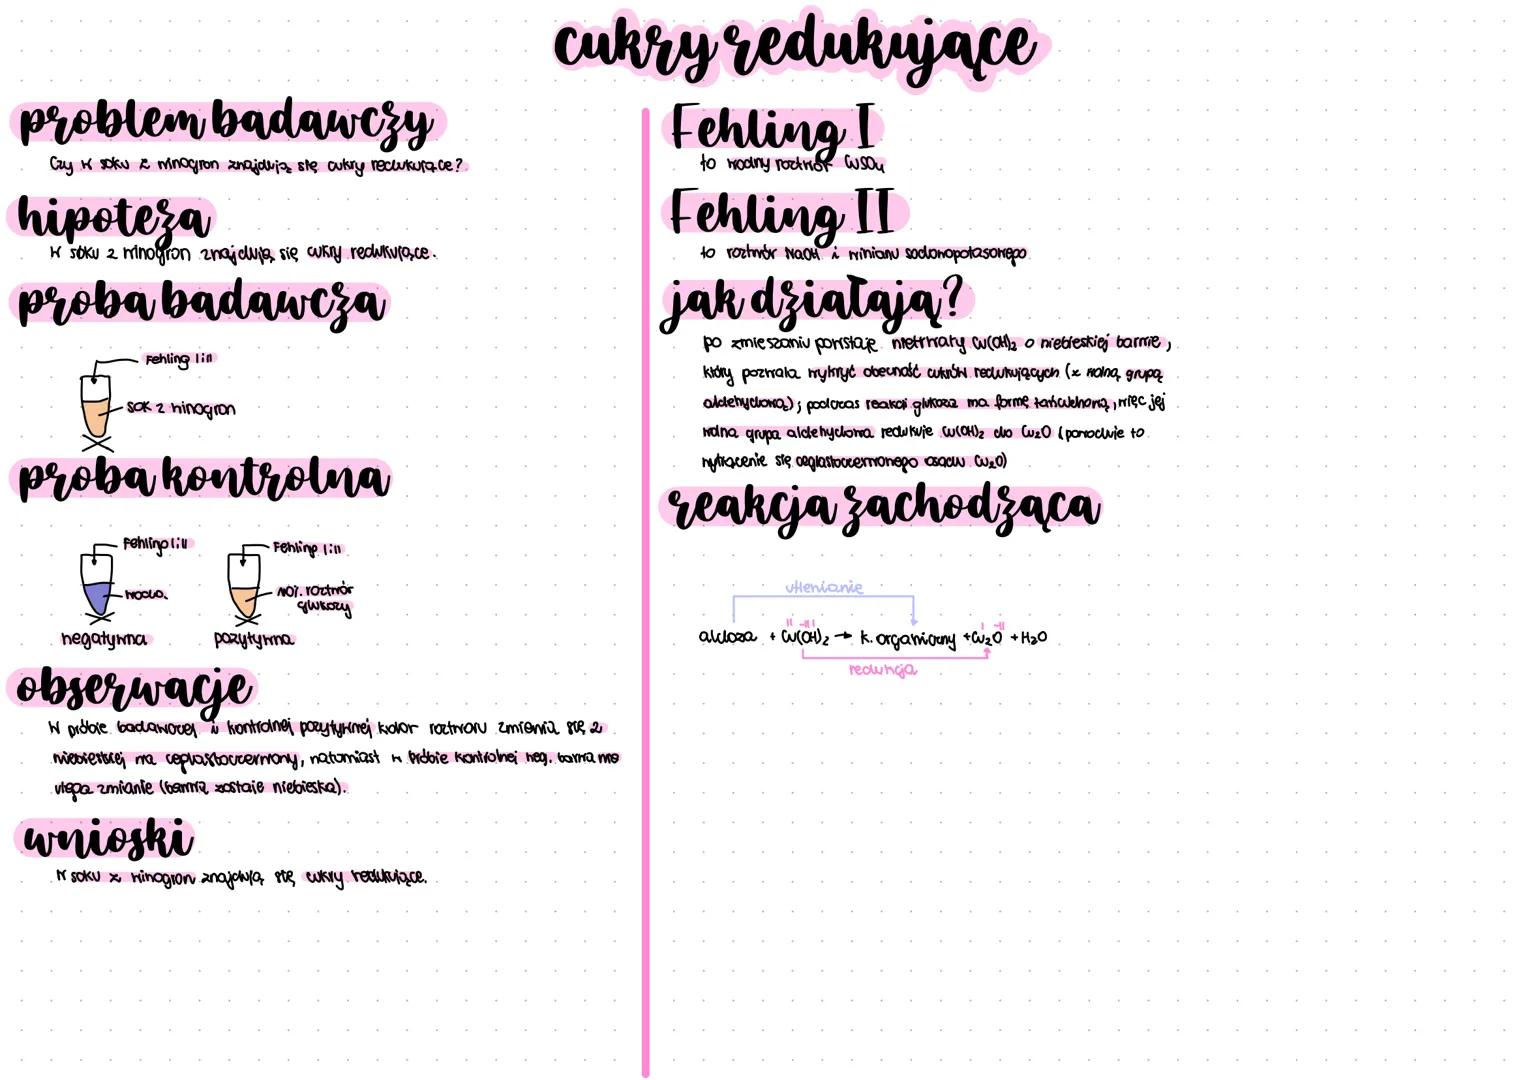 cukry redukujące
problem badawczy
Czy w soku z winogron znajdują się cukry redukujące?
hipoteza
W soku z winogron znajdują się cukry redukujące.
proba badawcza
Fehling I i II
sok z winogron
proba kontrolna
Fehling I i II
woda
negatywna
Fehling I i II
roztwór
glukozy
pozytywna
obserwacje
W próbie badawczej i kontrolnej pozytywnej kolor roztworu zmienia się z
niebieskiej na ceglastoczerwony, natomiast w próbie kontrolnej neg. barwa nie
ulega zmianie (barwa zostaje niebieska).
wnioski
W soku z winogron znajdują się cukry redukujące.
Fehling I
to wodny roztwór CuSO₄
Fehling II
to roztwór NaOH i winianu sodowopotasowego
jak działają?
po zmieszaniu powstaje nietrwały Cu(OH)₂ o niebieskiej barwie,
który pozwala wykryć obecność cukrów redukujących (z wolną grupą
aldehydową); podczas reakcji glukoza ma formę łańcuchową, więc jej
wolna grupa aldehydowa redukuje Cu(OH)₂ do Cu₂O (powoduje to
wytrącenie się ceglastoczerwonego osadu Cu₂O)
reakcja zachodząca
utlenianie
II -II I I -II
aldoza + Cu(OH)₂ → k. organiczny + Cu₂O + H₂O
redukcja